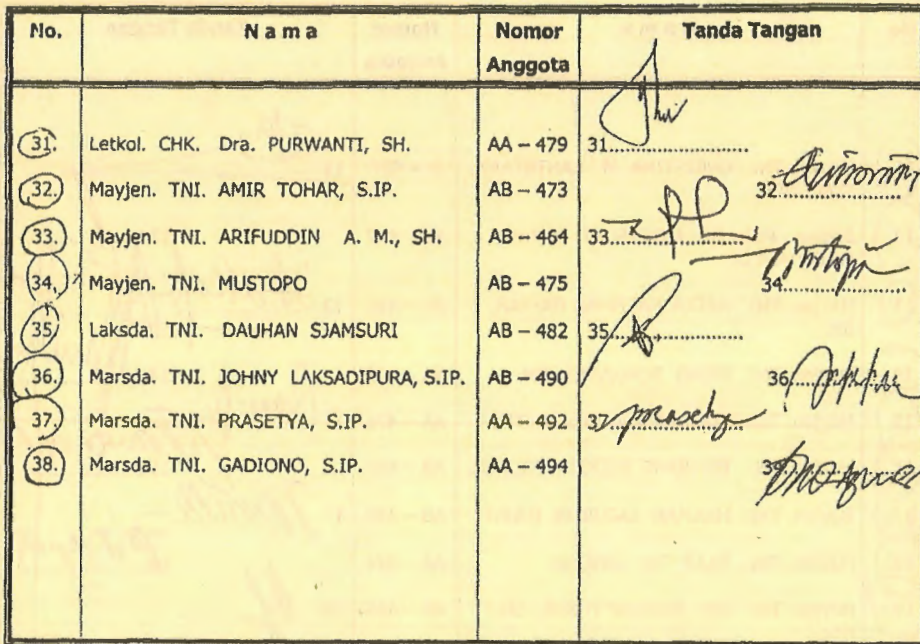 No. N a m a Nomor Anggota Tanda Tangan
31. Letkol. CHK. Dra. PURWANTI, SH. AA – 479 31
32. Mayjen. TNI. AMIR TOHAR, S.IP. AB – 473 32
33. Mayjen. TNI. ARIFUDDIN A. M., SH. AB – 464 33
34. Mayjen. TNI. MUSTOPO AB – 475 34
35 Laksda. TNI. DAUHAN SJAMSURI AB – 482 35
36. Marsda. TNI. JOHNY LAKSADIPURA, S.IP. AB – 490 36
37. Marsda. TNI. PRASETYA, S.IP. AA – 492 37 prasetya
38. Marsda. TNI. GADIONO, S.IP. AA – 494